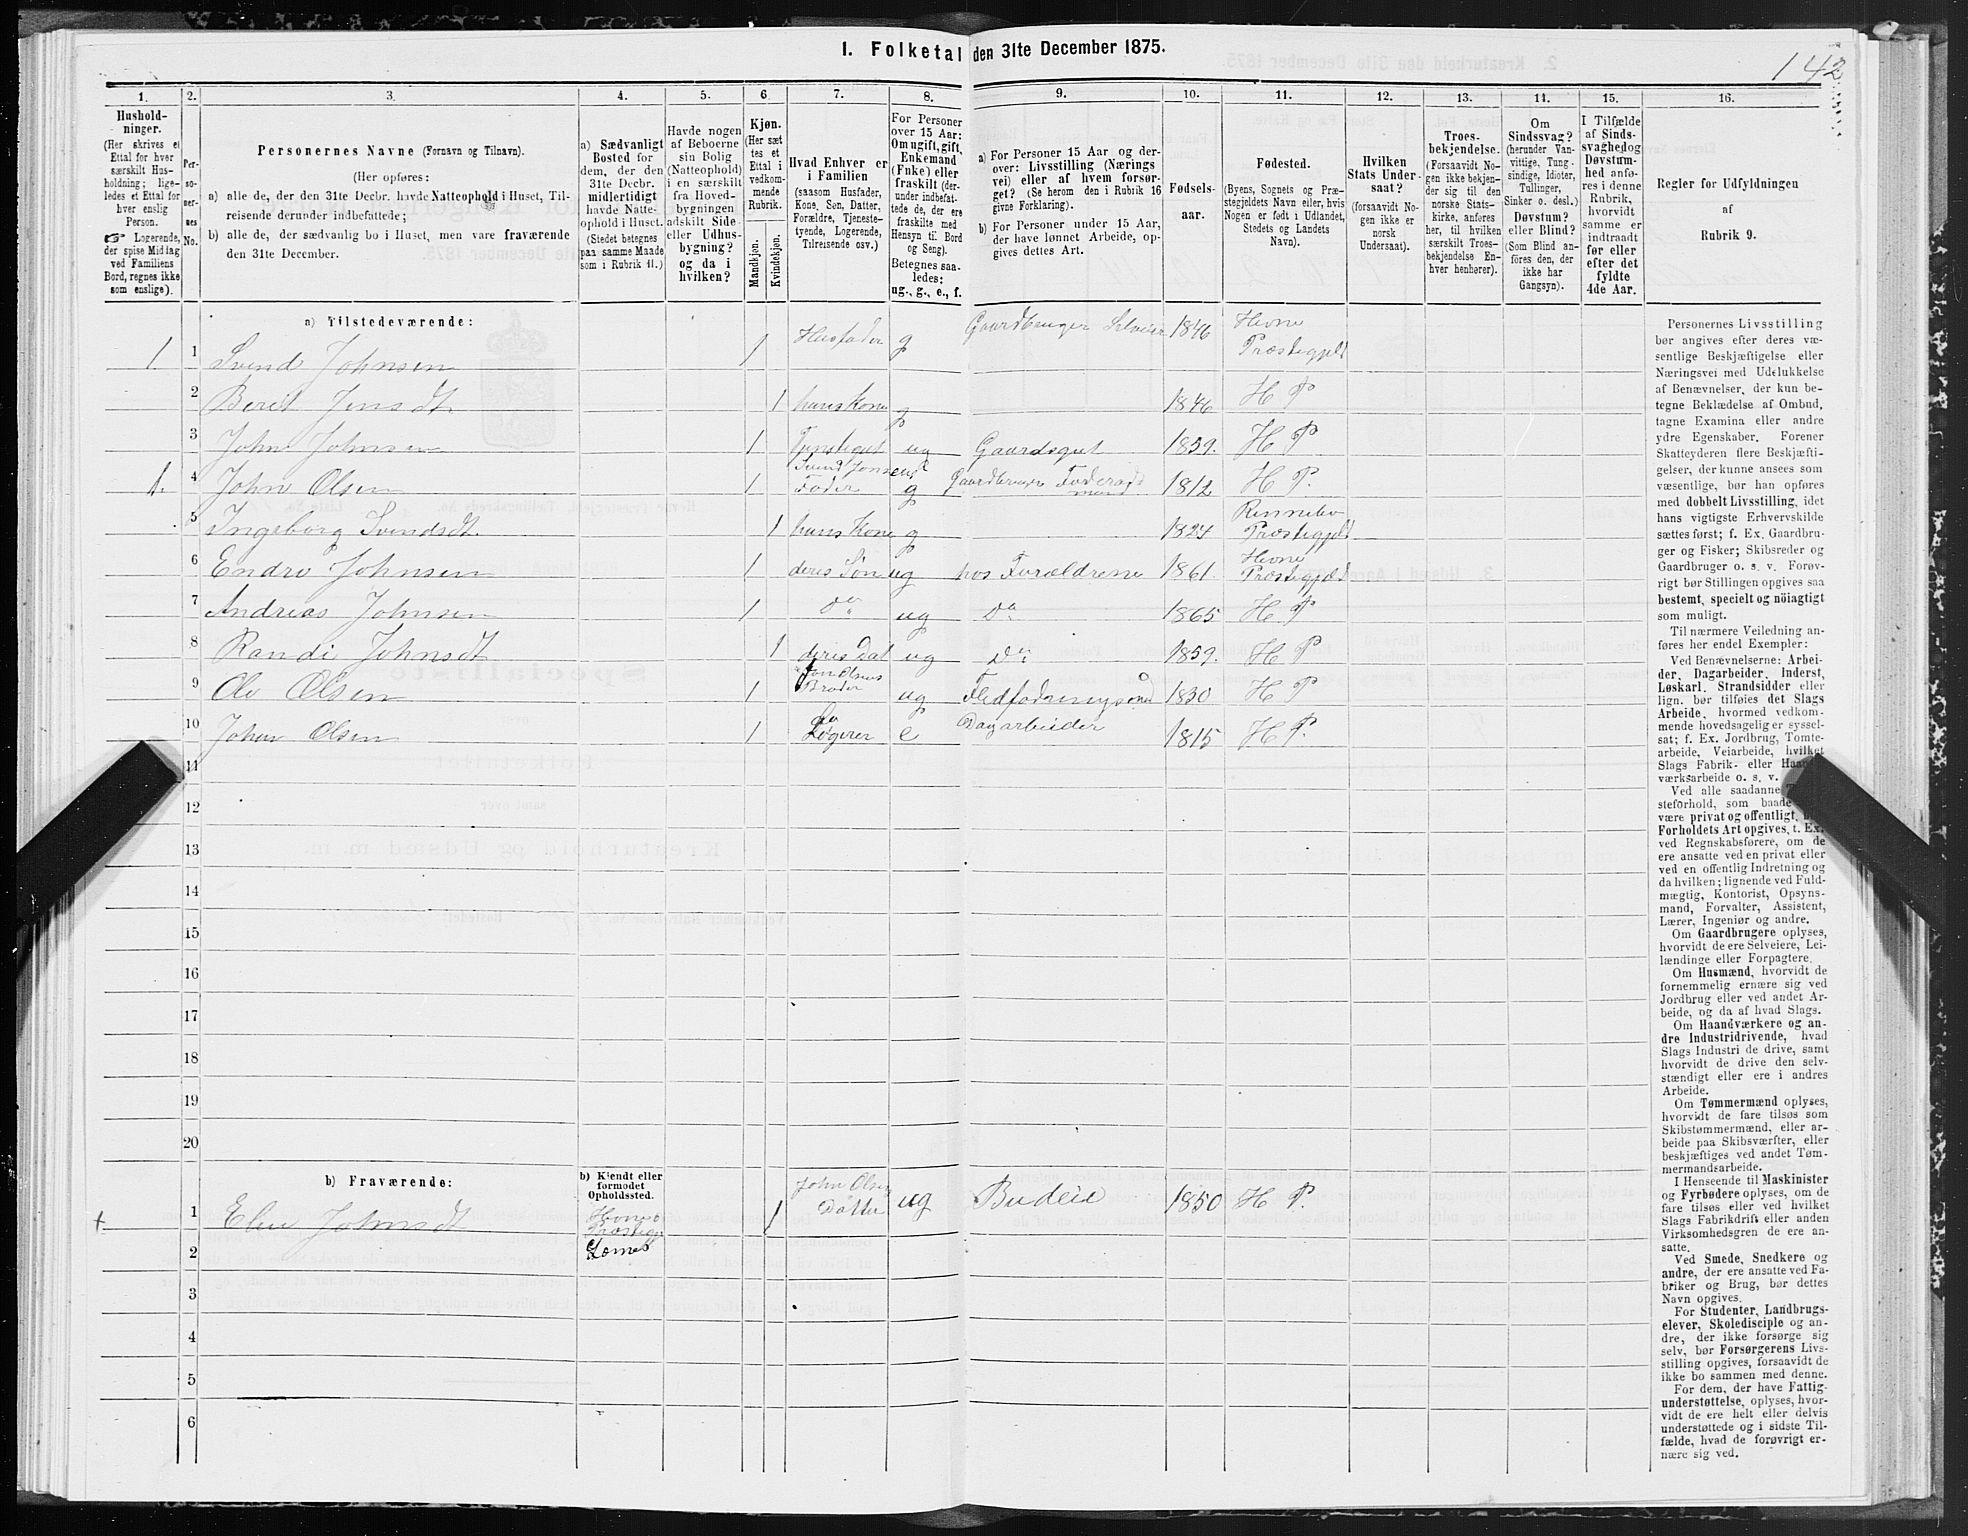 I. Folketal den 31te December 1875.
142
1. 2. 3. 4. 5. 6. 7. 8. 9. 10. 11. 12. 13. 14. 15. 16.
Hushold-
ninger.
(Her skrives et
Ettal for hver
særskilt Hus-
holdning; lige-
ledes et Ettal for
hver enslig
Person.
☞ Logerende,
der spise Middag
ved Familiens
Bord, regnes ikke
som enslige).
Per-
so-
ner-
nes
No.
Personernes Navne (Fornavn og Tilnavn).
(Her opføres:
a) alle de, der den 31te Decbr. havde Natteophold i Huset, Til-
reisende derunder indbefattede;
b) alle de, der sædvanlig bo i Huset, men vare fraværende
den 31te December.
a) Sædvanligt
Bosted for
dem, der den
31te Decbr.
midlertidigt
havde Natte-
ophold i Huset.
(Stedet betegnes
paa samme Maade
som i Rubrik 11.)
Havde nogen
af Beboerne
sin Bolig
(Natteophold)
i en særskilt
fra Hoved-
bygningen
adskilt Side-
eller Udhus-
bygning?
og da i
hvilken?
Kjøn.
(Her sæt
tes et
Ettal i
vedkom-
mende
Rubrik.
Mandkjøn.
Kvindekjøn.
Hvad Enhver er
i Familien
(saasom Husfader,
Kone, Søn, Datter,
Forældre, Tjeneste-
tyende, Logerende,
Tilreisende osv.)
For Personer
over 15 Aar:
Om ugift, gift,
Enkemand
(Enke) eller
fraskilt (der-
under indbefat-
tede de, der ere
fraskilte med
Hensyn til Bord
og Seng).
Betegnes saa-
ledes:
ug., g., e., f.
a) For Personer 15 Aar og der-
over: Livsstilling (Nærings
vei) eller af hvem forsør-
get? (Se herom den i Rubrik 16
givne Forklaring).
b) For Personer under 15 Aar,
der have lønnet Arbeide, op-
gives dettes Art.
Fødsels-
aar.
Fødested.
(Byens, Sognets og Præ-
stegjeldets Navn eller, hvis
Nogen er født i Udlandet,
Stedets og Landets
Navn).
Hvilken
Stats Under-
saat?
(forsaavidt No-
gen ikke er
norsk
Undersaat).
Troes-
bekjendelse.
(Forsaavidt No-
gen ikke bekjen-
der sig til den
norske Stats-
kirke, anføres
her, til hvilken
særskilt Troes-
bekjendelse En-
hver henhører).
Om
Sindssvag?
(herunder Van-
vittige, Tung-
sindige, Idioter,
Tullinger,
Sinker o. desl.)
Døvstum?
eller Blind?
(Som Blind an-
føres den, der
ikke har
Gangsyn).
I Tilfælde
af Sinds-
svaghed og
Døvstum-
hed anfø-
res i denne
Rubrik,
hvorvidt
samme er
indtraadt
før eller
efter det
fyldte
4de Aar.
Regler for Udfyldningen
af
Rubrik 9.
a) Tilstedeværende:
1. 1 Svend Johnsen 1 Husfader g Gaardbruger Selveier 1846 Hevne Præstegjeld
2 Berit Jensdt 1 hans Kone g 1846 H P
3 John Johnsen 1 Tjenstegut ug Gaardsgut 1859. H P
1. 4 John Olsen 1 Svend Jonsens Fader g Gaardbruger Foderaadsmand 1812 H P.
5 Ingeborg Svendsdt. 1 hans Kone g 1824 Rennebo Præstegjeld
6 Endre Johnsen 1 deres Søn ug hos Forældrene 1861. Hevne Præstegjeld
7 Andreas Johnsen 1 do ug do 1865 H P
8 Randi Johnsdt 1 deres Dat ug do 1859. H P
9 Ole Olsen 1 Jon Olsens Broder ug 1830 H P
10 Johan Olsen 1 Logerer e Dagarbeider 1815 H P.
11
12
13
14
15
16
17
18
19
20
b) Fraværende:
b) Kjendt eller
formodet
Opholdssted.
+ 1 Elen Johnsdt Hevne Præstegj 1 John Olsen Datter ug Budeie 1850 H P.
2
3
4
5
6
Personernes Livsstilling
bør angives efter deres væ-
sentlige Beskjæftigelse eller
Næringsvei med Udelukkelse
af Benævnelser, der kun be-
tegne Beklædelse af Ombud,
tagne Examina eller andre
ydre Egenskaber. Forener
Skatteyderen flere Beskjæfti-
gelser, der kunne ansees som
væsentlige, bør han opføres
med dobbelt Livsstilling, idet
hans vigtigste Erhvervskilde
sættes først; f. Ex. Gaardbru-
ger og Fisker; Skibsreder og
Gaardbruger o. s. v. Forøv-
rigt bør Stillingen opgives saa
bestemt, specielt og nöiagtigt
som muligt.
Til nærmere Veiledning an-
føres her endel Exempler:
Ved Benævnelserne: Arbei-
der, Dagarbeider, Inderst,
Løskarl, Strandsidder eller
lign. bør tilføies det Slags
Arbeide, hvormed vedkom-
mende hovedsagelig er syssel-
sat; f. Ex. Jordbrug, Tomte-
arbeide, Veiarbeide, hvilket
Slags Fabrik- eller Haand-
værksarbeide o. s. v.
Ved alle saadanne
steforhold, som baade
være privat og offentligt,
Forholdets Art opgives, t. Ex.
ved Regnskabsførere, om de
ere ansatte ved en privat eller
ved en offentlig Indretning og
da hvilken; lignende ved Fuld-
mægtig, Kontorist, Opsyns-
mand, Forvalter, Assistent,
Lærer, Ingeniør og andre.
Om Gaardbrugere oplyses,
hvorvidt de ere Selveiere, Lei-
lændinge eller Forpagtere.
Om Husmænd, hvorvidt de
fornemmelig ernære sig ved
Jordbrug eller ved andet Ar-
beide, og da af hvad Slags.
Om Haandværkere og an-
dre Industridrivende, hvad
Slags Industri de drive, samt
hvorvidt de drive den selv-
stændigt eller ere i andres
Arbeide.
Om Tømmermænd oplyses,
hvorvidt de fare tilsøs som
Skibstømmermænd, eller ar-
beide paa Skibsværfter, eller
beskjæftiges ved andet Tøm-
mermandsarbeide.
I Henseende til Maskinister
og Fyrbødere oplyses, om de
fare tilsøs eller ved hvilket
Slags Fabrikdrift eller anden
Virksomhedsgren de ere an-
satte.
Ved Smede, Snedkere og
andre, der ere ansatte ved Fa-
briker og Brug, bør dettes
Navn opgives.
For Studenter, Landbrugs-
elever, Skoledisciple og an-
dre, der ikke forsørge sig
selv, bør Forsørgerens Livs-
stilling opgives, forsaavidt de
ikke bo sammen med denne.
For dem, der have Fattig-
understøttelse, oplyses, hvor-
vidt de ere helt eller delvis
understøttede og i sidste Til-
fælde, hvad de forøvrigt er-
nære sig ved.